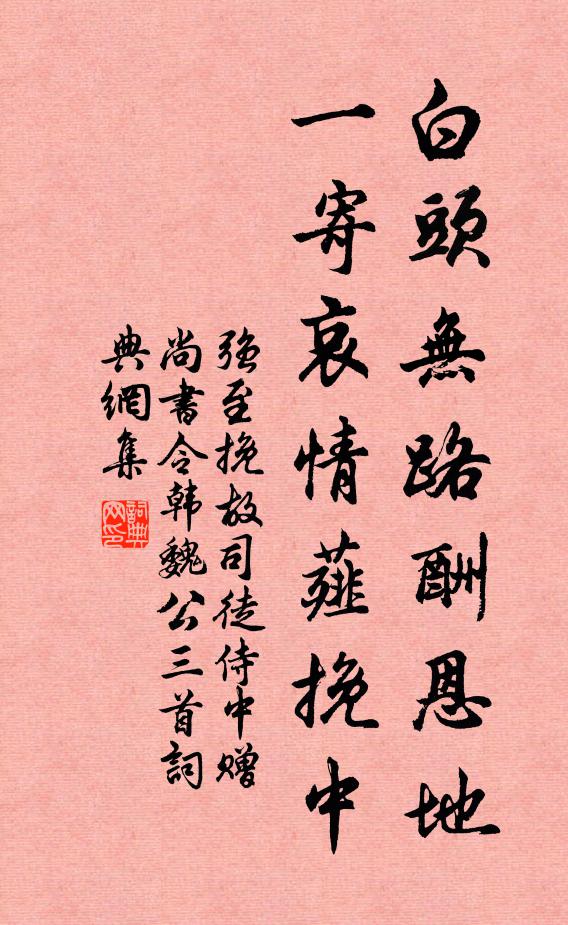 白頭無路酬恩地
一寄哀情薤挽中
强至挽故司徒侍中赠
尚書令韩魏公三首詞
典網集
詞典
网印